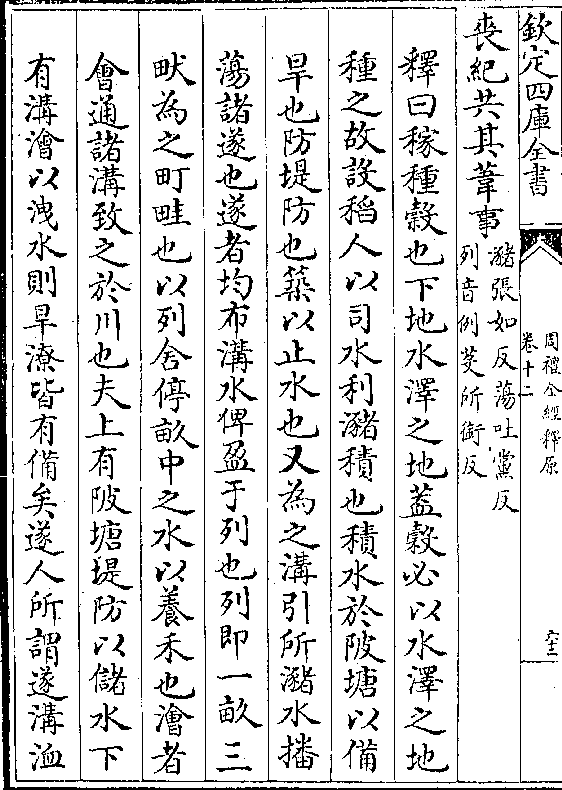 欽定四庫全書
周禮全經釋原
卷十二
六十二
喪紀共其葦事
瀦張如反蕩吐黨反
列音例芟所銜反
釋曰稼種穀也下地水澤之地葢穀必以水澤之地
種之故設稻人以司水利瀦積也積水於陂塘以備
旱也防堤防也築以止水也又為之溝引所瀦水播
蕩諸遂也遂者均布溝水俾盈于列也列即一畝三
畎為之町畦也以列舍停畝中之水以養禾也澮者
會通諸溝致之於川也夫上有陂塘堤防以儲水下
有溝澮以洩水則旱潦皆有備矣遂人所謂遂溝洫